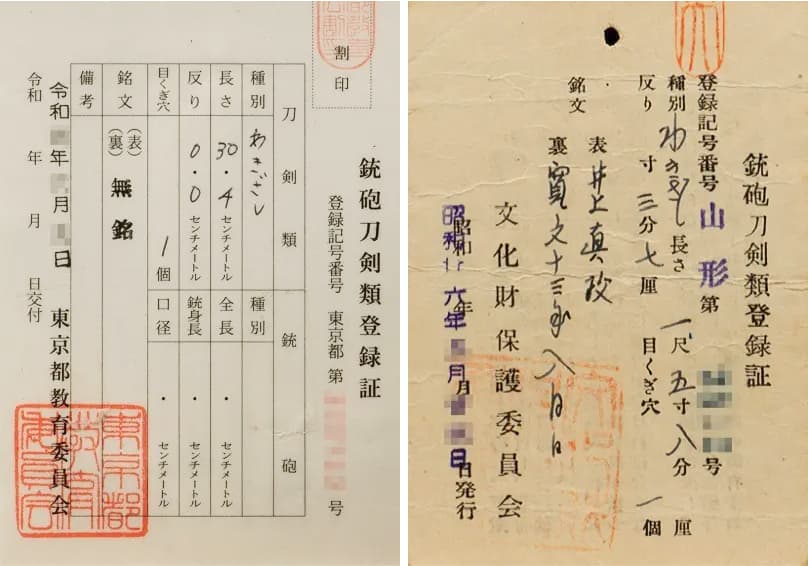 割印
銃砲刀剣類登録証
登録記号番号 東京都 第 号
刀剣類 銃砲
種別 わきざし 種別
長さ 30・4センチメートル 全長 ・センチメートル
反り 0・0センチメートル 銃身長 ・センチメートル
目くぎ穴 1個 口径 ・センチメートル
銘文 (表) (裏) 無銘
備考
令和 年 月 日 東京都教育委員会
令和 年 月 日交付
東京都教育委員会
銃砲刀剣類登録証
登録記号番号 山形 第 号
種別 わきざし 長さ 一尺五寸八分 厘
反り 寸三分七厘 目くぎ穴 一個
銘文 表 井上真改
裏 寛文十三年八月日
文化財保護委員会
昭和 年 月 日発行
昭和 六年 月 日